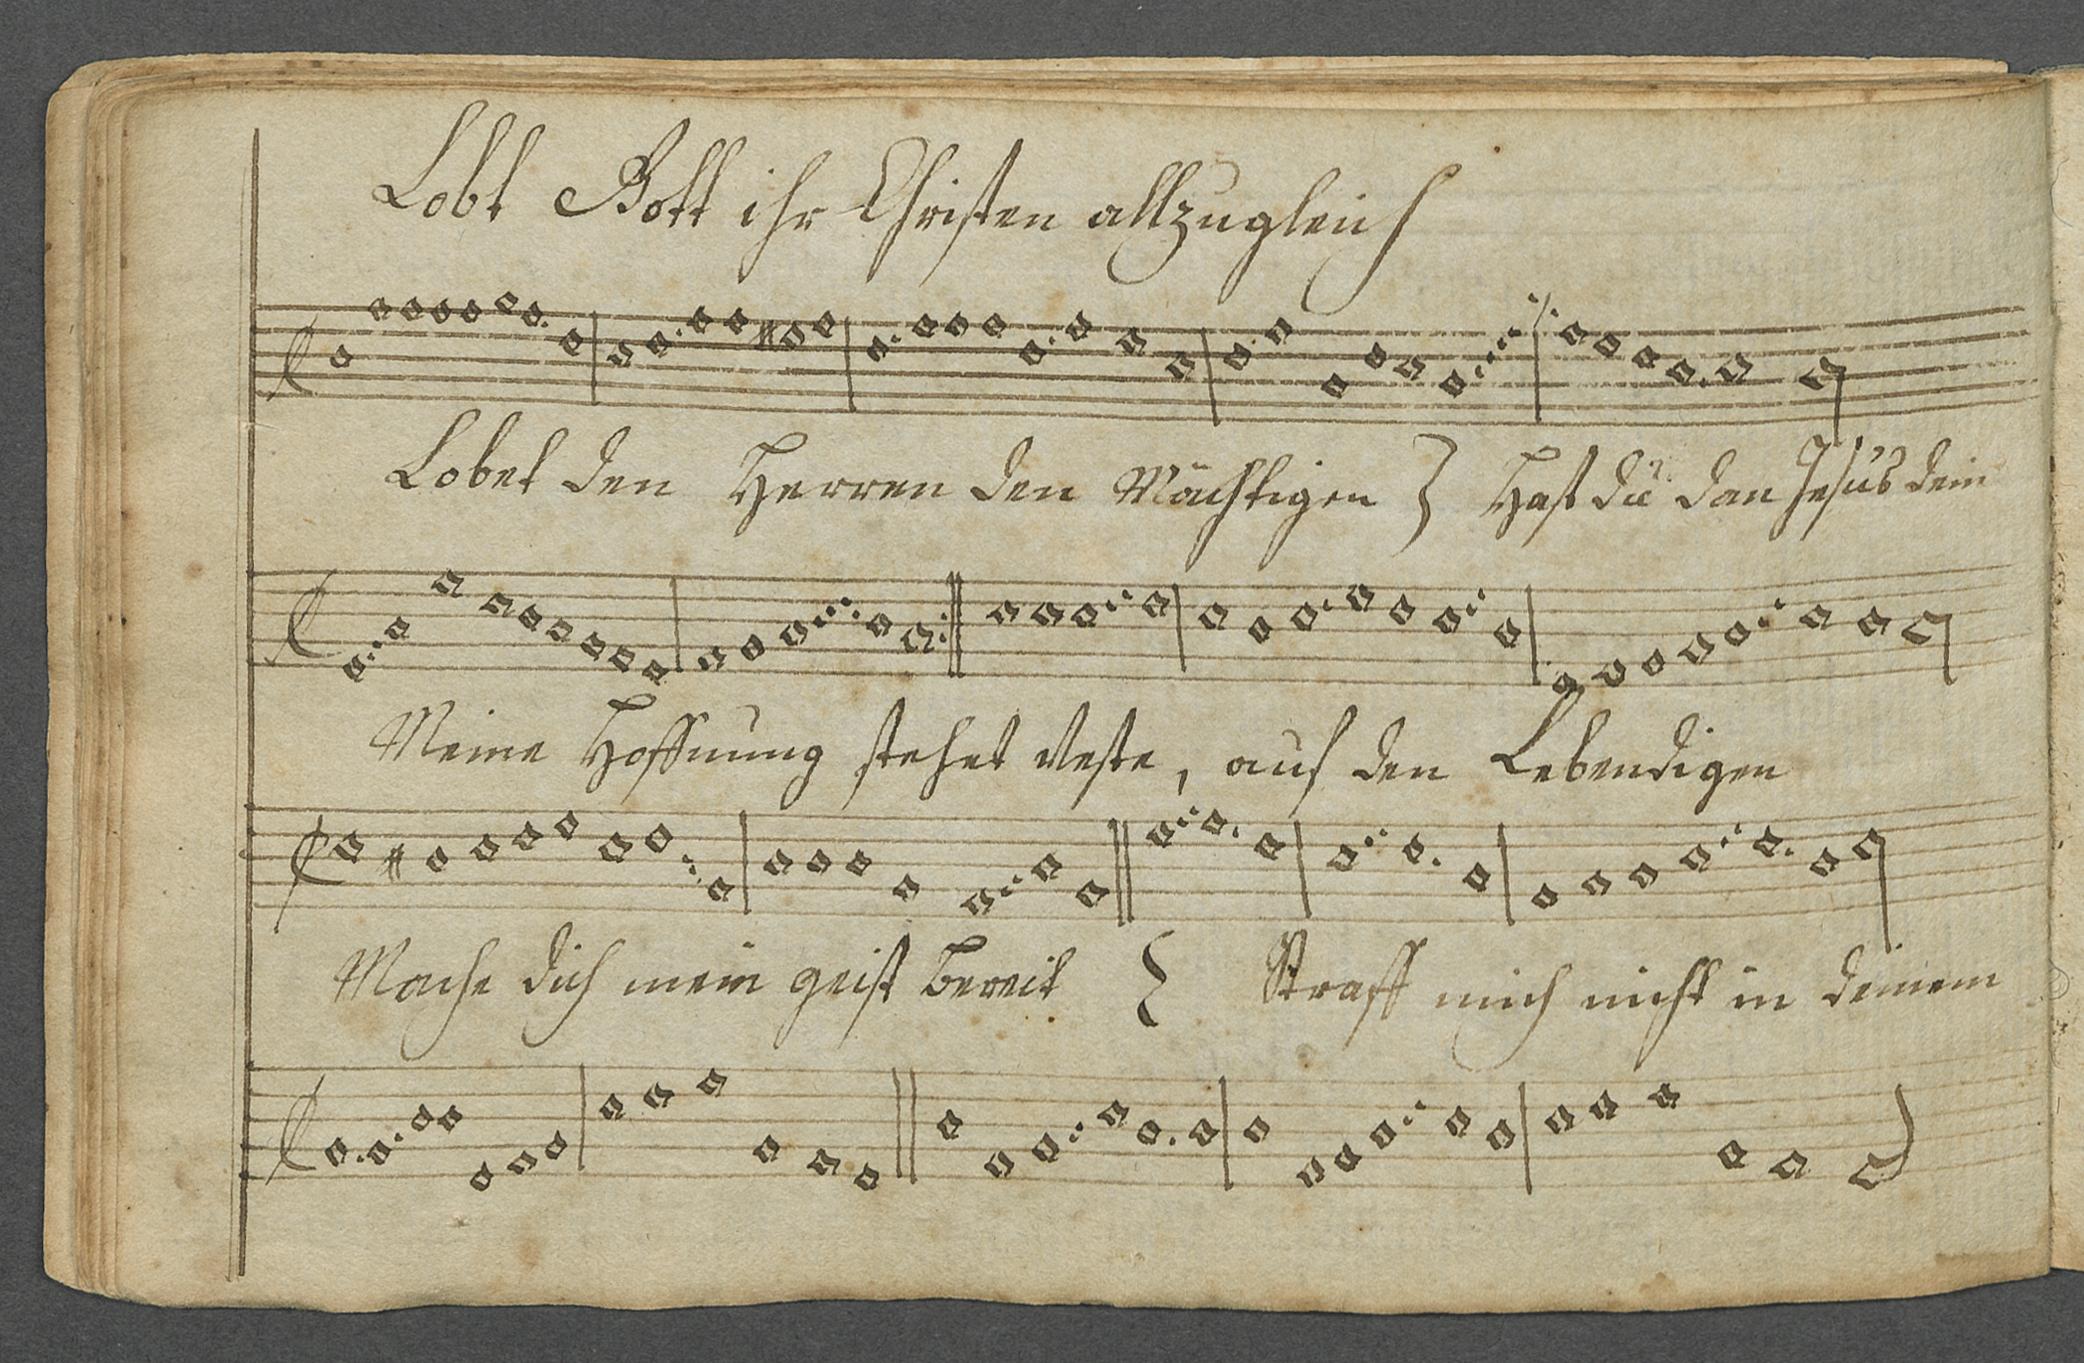 Lobt Gott ihr Christen allzugleich
Lobet den Herren den Mächtigen } Hast dü dan Jesüs dein
Meine Hoffnung stehet Veste, auf den Lebendigen
Mache dich mein geist bereit { Straff mich nicht in deinem